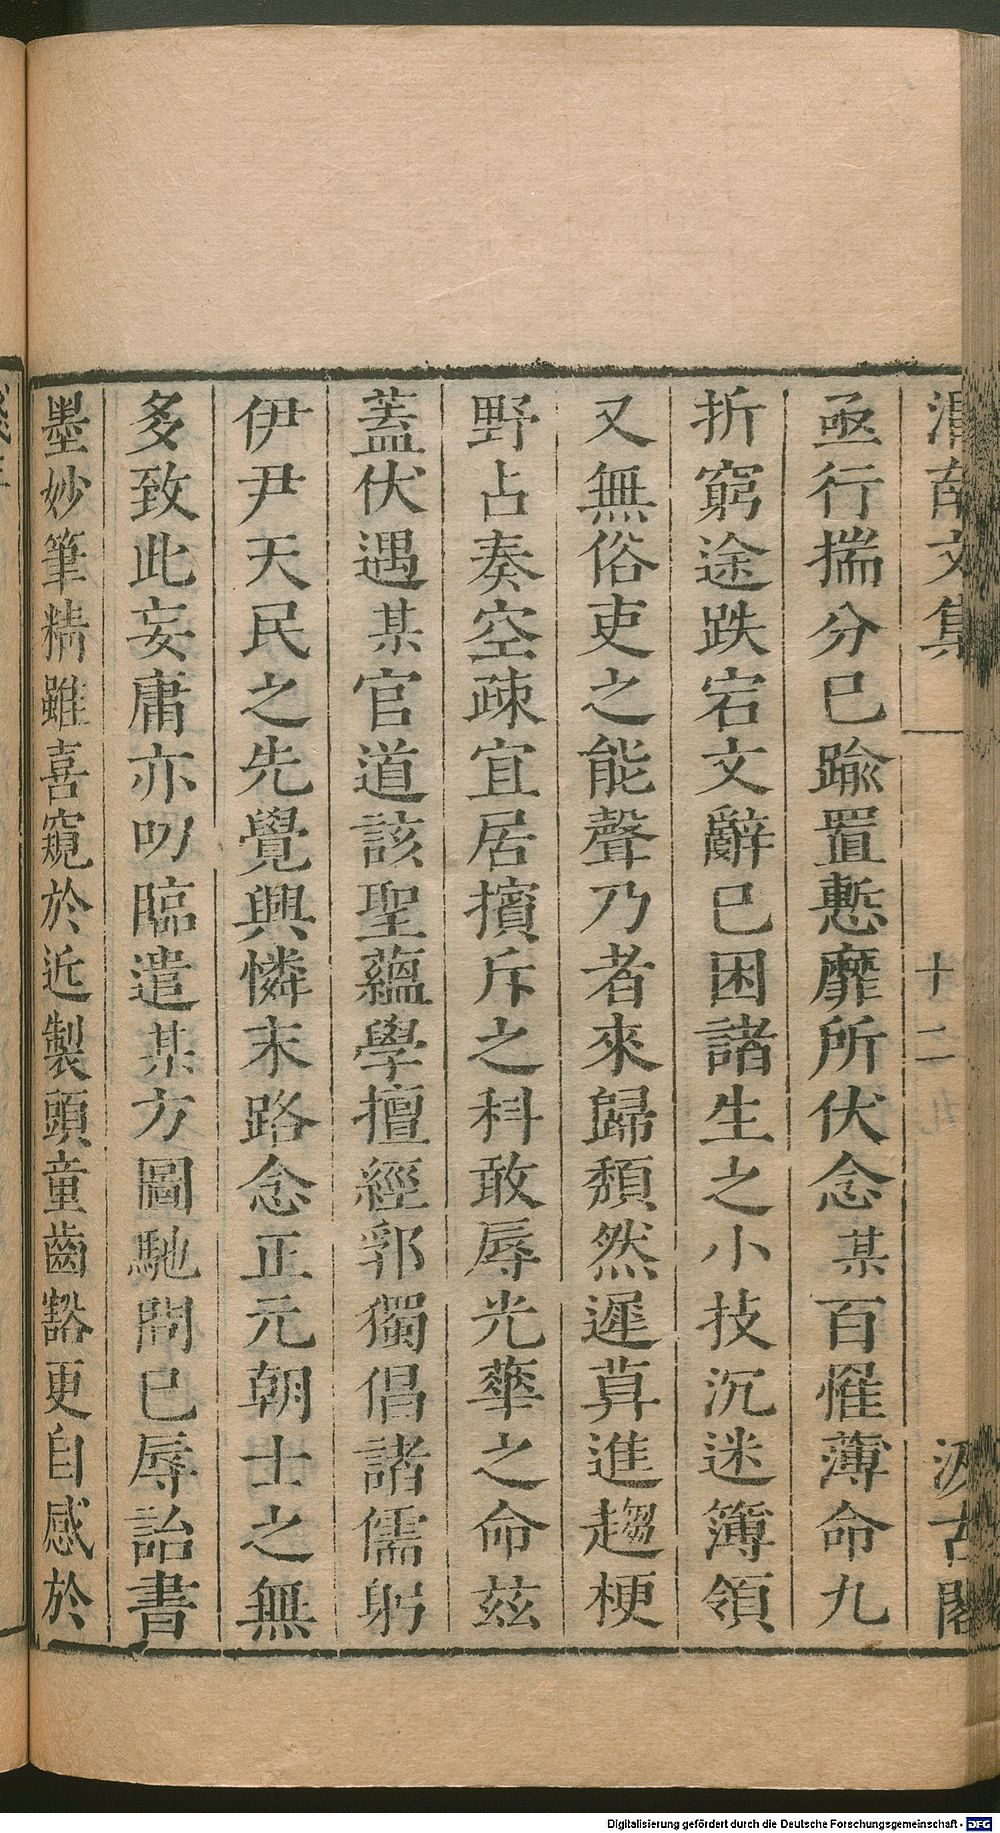 渭南文集 十二 汲古閣
亟行揣分已踰置慙靡所伏念某百罹薄命九
折窮途跌宕文辭已困諸生之小技沉迷簿領
又無俗吏之能聲乃者來歸頹然遲莫進趨梗
野占奏空疎宜居擯斥之科敢辱光華之命茲
蓋伏遇某官道該聖蘊學擅經郛獨倡諸儒躬
伊尹天民之先覺興憐末路念正元朝士之無
多致此妄庸亦叨臨遣某方圖馳問已辱詒書
墨妙筆精雖喜窺於近製頭童齒豁更自感於
Digitalisierung gefördert durch die Deutsche Forschungsgemeinschaft - DFG